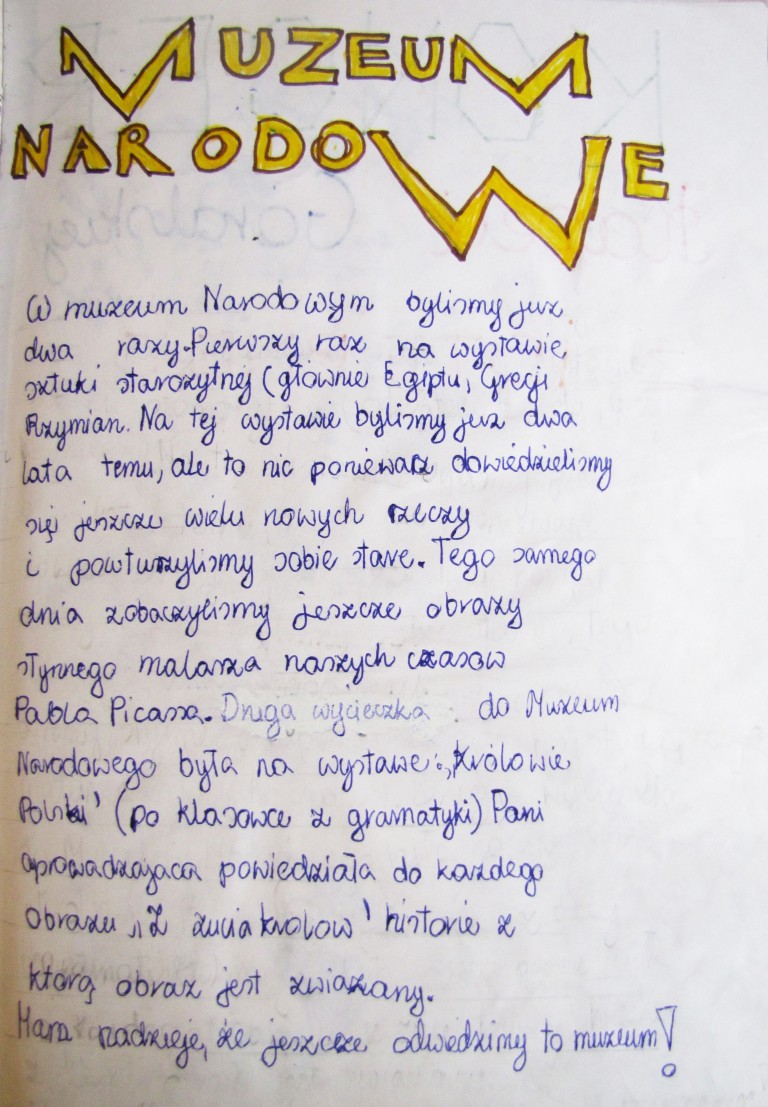 MUZEUM
NARODOWE
W muzeum Narodowym bylismy juz
dwa razy. Pierwszy raz na wystawie
sztuki starozytnej (głownie Egiptu, Grecji
Rzymian. Na tej wystawie bylismy juz dwa
lata temu, ale to nic poniewarz dowiedzielismy
się jeszcze wielu nowych rzeczy
i powturzylismy sobie stare. Tego samego
dnia zobaczylismy jeszcze obrazy
słynnego malarza naszych czasow
Pabla Picassa. Druga wycieczka do Muzeum
Narodowego była na wystawe: „Królowie
Polski" (po klasowce z gramatyki) Pani
oprowadzajaca powiedziała do kazdego
obrazu „Z zucia krolow" historie z
ktorą obraz jest zwiazany.
Mam nadzieje, że jeszcze odwedzimy to muzeum!